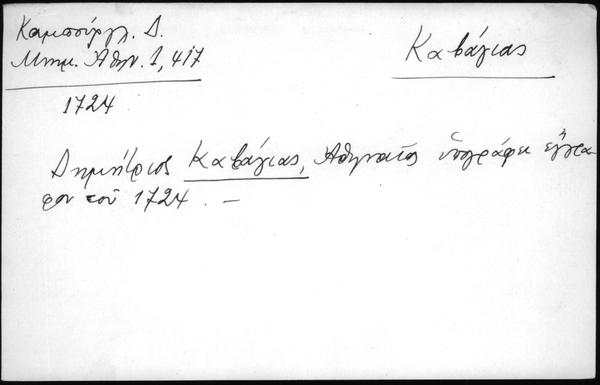 Καμπούργλ. Δ.
Μνημ. Ἀθην. 1, 417
Καβάγιας
1724
Δημήτριος Καβάγιας, Ἀθηναῖος ὑπογράφει ἔγγρα-
φον τοῦ 1724. —